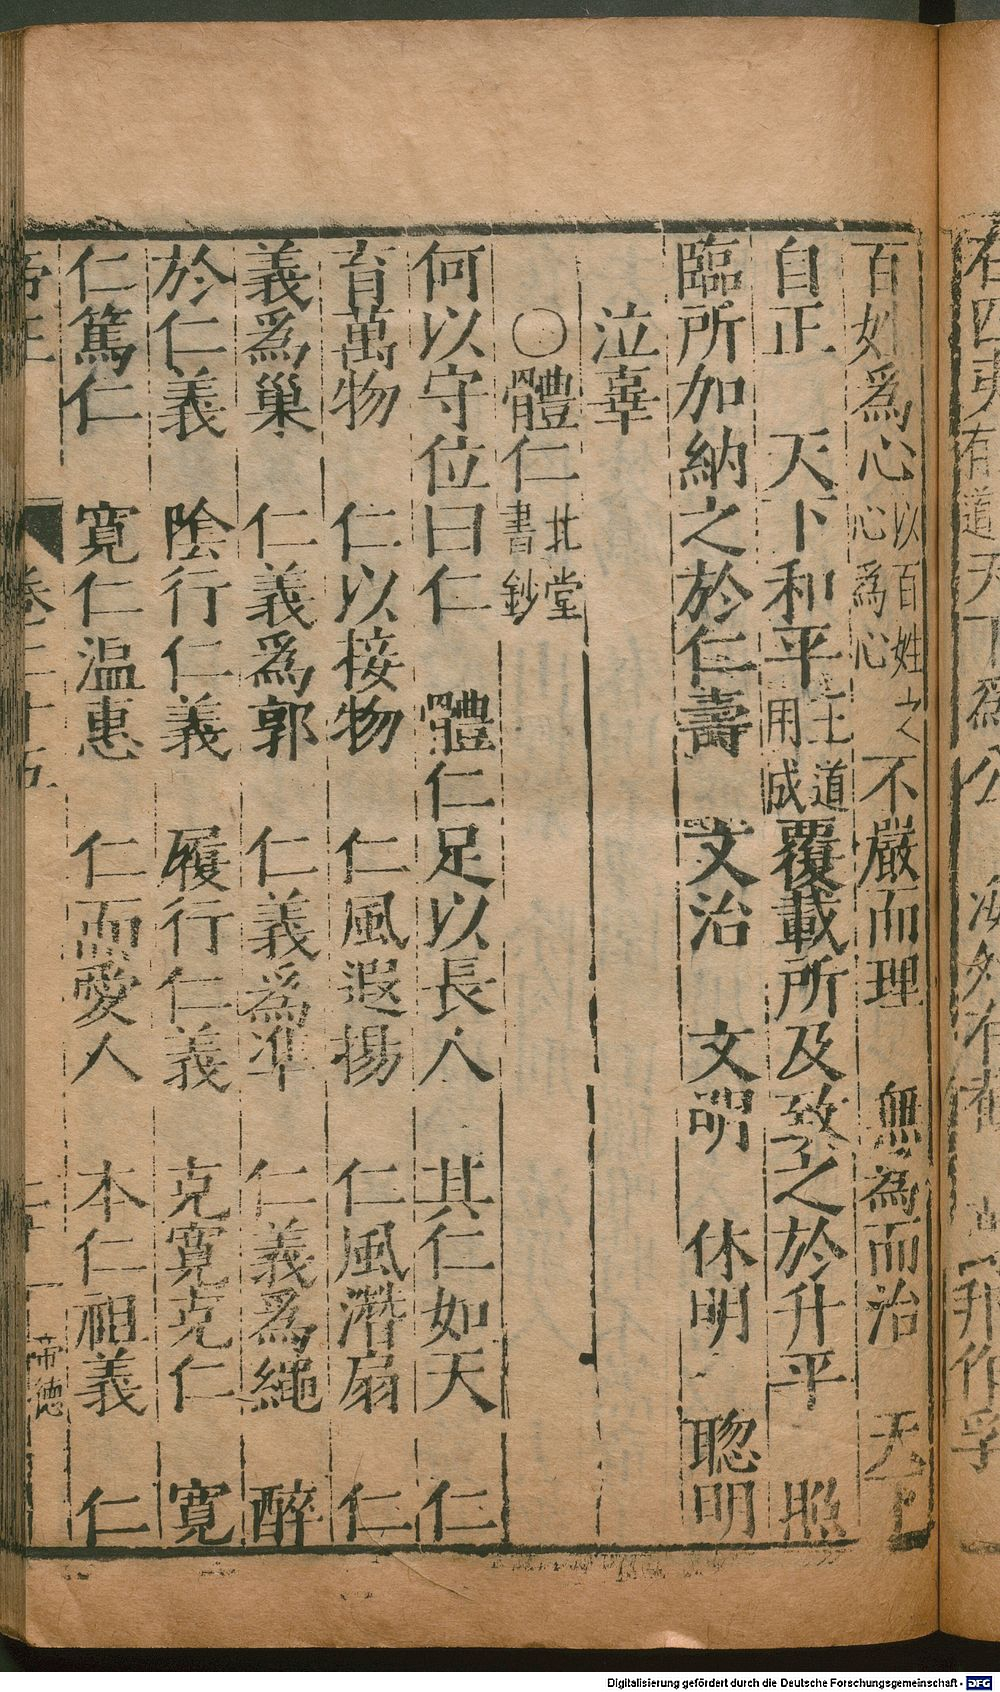 百姓爲心以百姓之心爲心不嚴而理 無為而治 天下
自正 天下和平用王道成覆載所及致之於升平 照
臨所加納之於仁壽 文治 文明 休明 聦明
泣辜
○體仁北堂書鈔
何以守位曰仁 體仁足以長人 其仁如天 仁
育萬物 仁以接物 仁風遐揚 仁風潛扇 仁
義爲巢 仁義爲郭 仁義爲準 仁義爲繩 醉
於仁義 陰行仁義 履行仁義 克寛克仁 寛
仁篤仁 寛仁温惠 仁而愛人 本仁祖義 仁
帝王 卷二十五 帝德
Digitalisierung gefördert durch die Deutsche Forschungsgemeinschaft - DFG